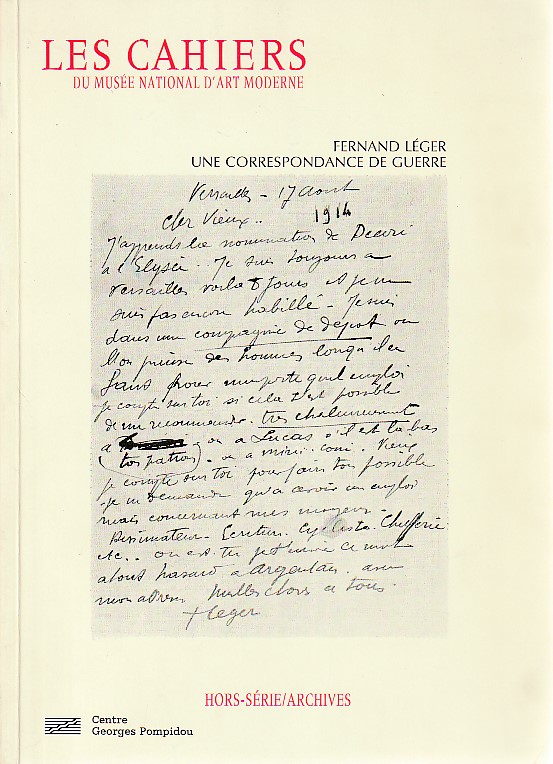 LES CAHIERS
DU MUSÉE NATIONAL D'ART MODERNE
FERNAND LÉGER
UNE CORRESPONDANCE DE GUERRE
Versailles - 17 Aout
1914
Cher Vieux..
J'apprends la nomination de Decori
a l'Elysée. Je suis toujours a
Versailles voila 8 jours et je ne
suis pas encore habillé - Je suis
dans une compagnie de dépot ou
l'on puise des hommes lorsqu'il en
faut pour n'importe quel emploi
je compte sur toi si cela t'est possible
de me recommander. très chaleureusement
a ou a Lucas s'il est la bas
(ton patron) - ou a Vieux
je compte sur toi pour faire ton possible
je ne demande qu'a avoir un emploi
mais concernant mes moyens -
Dessinateur - Ecriture. Cycliste. Chefferie
etc.. ou es. tu je t'envoie ce mot
a tout hasard a Argentan. avec
mon adresse Milles choses a tous.
FLeger
HORS-SÉRIE/ARCHIVES
Centre
Georges Pompidou